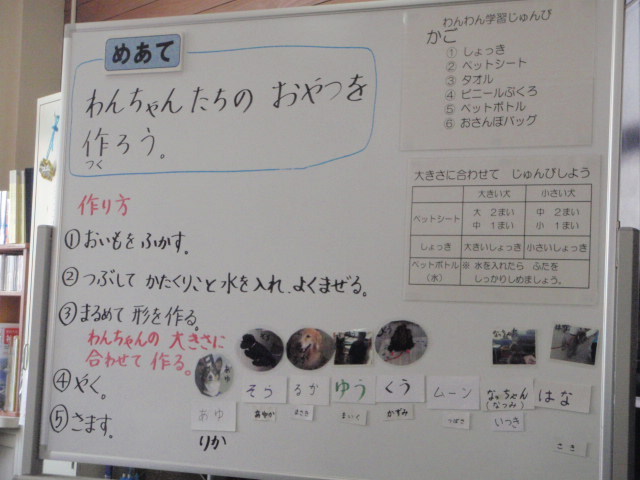 めあて
わんちゃんたちの おやつを
作ろう。
つく
わんわん学習じゅんび
かご
① しょっき
② ペットシート
③ タオル
④ ビニールぶくろ
⑤ ペットボトル
⑥ おさんぽバッグ
大きさに合わせて じゅんびしよう
大きい犬 小さい犬
ペットシート 大 2まい 中 1まい 中 2まい 小 1まい
しょっき 大きいしょっき 小さいしょっき
ペットボトル(水) ※ 水を入れたら ふたを しっかりしめましょう。
作り方
①おいもを ふかす。
②つぶして かたくりこと水を入れ、よくまぜる。
③まるめて 形を作る。
わんちゃんの 大きさに
合わせて 作る。
④やく。
⑤さます。
あゆ そら るか ゆう くう ムーン なっちゃん(なつみ) はな
りか あやか まさき かずみ つばさ いつき